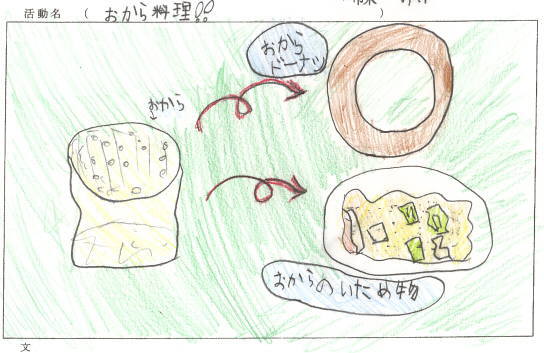 活動名 ( おから料理!! )
おから
ドーナツ
おから
おからのいため物
文